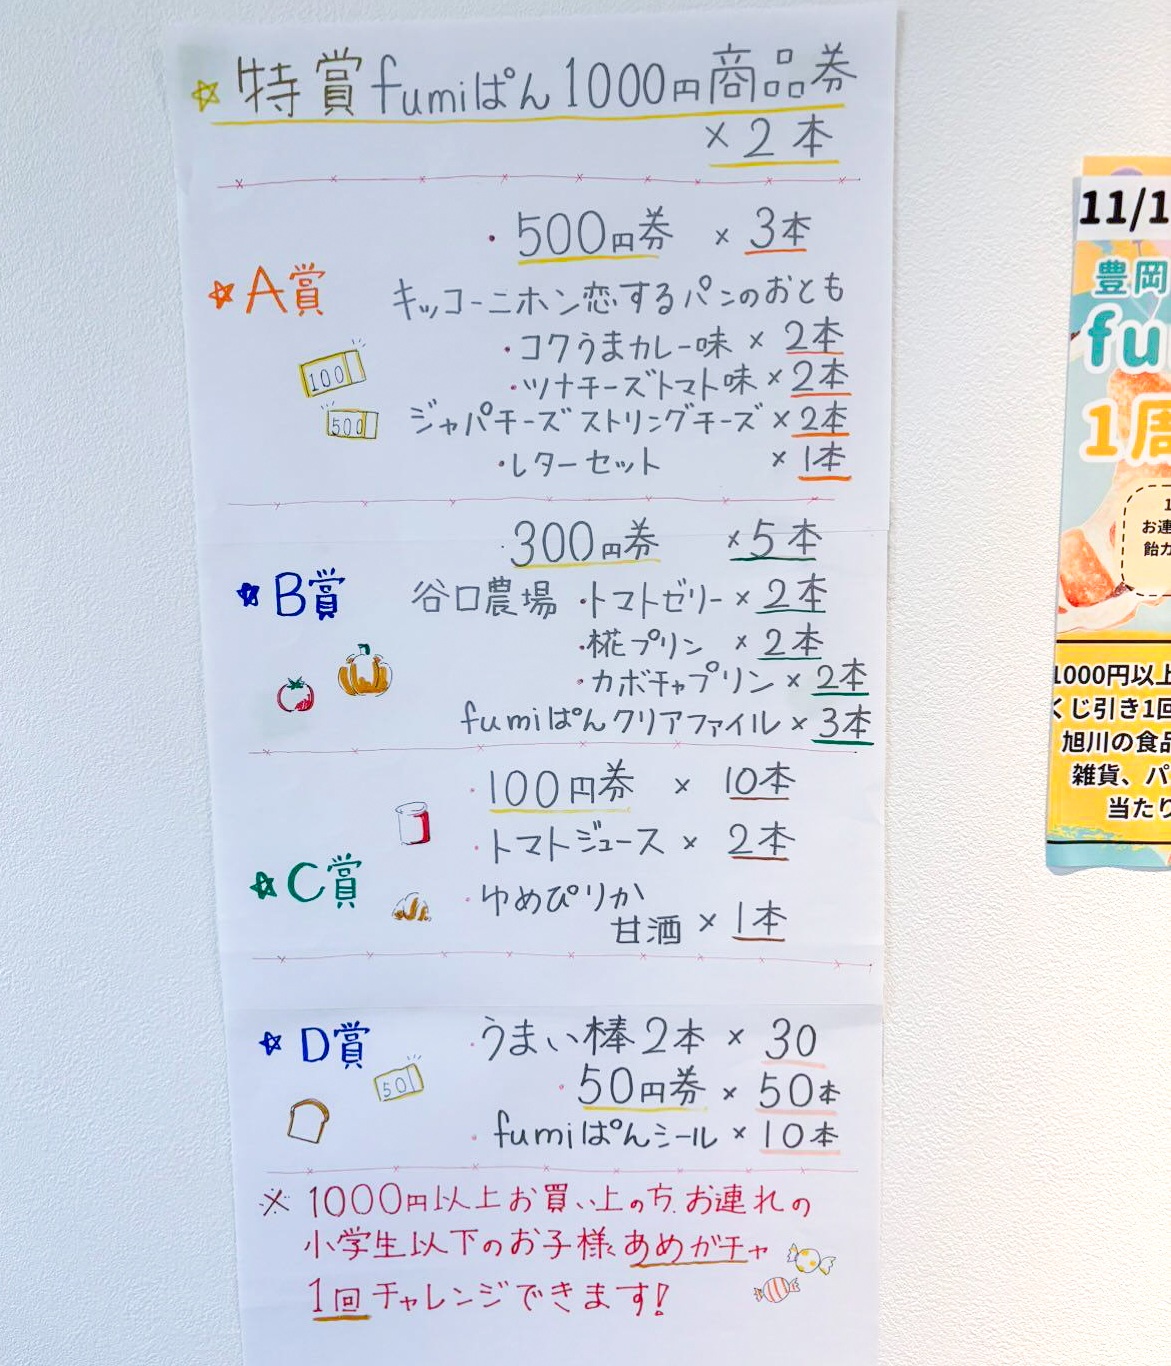 ☆特賞fumiぱん1000円商品券
×2本
・500円券 ×3本
☆A賞
キッコーニホン恋するパンのおとも
・コクうまカレー味×2本
100
・ツナチーズトマト味×2本
500
ジャパチーズストリングチーズ×2本
・レターセット ×1本
・300円券 ×5本
☆B賞
谷口農場・トマトゼリー×2本
・椛プリン ×2本
・カボチャプリン×2本
fumiぱんクリアファイル×3本
・100円券 × 10本
・トマトジュース× 2本
☆C賞
・ゆめぴりか
甘酒×1本
☆D賞
・うまい棒2本×30
50
・50円券×50本
・fumiぱんシール×10本
※1000円以上お買い上の方、お連れの
小学生以下のお子様、あめガチャ
1回チャレンジできます!
11/1
豊岡
fu
1周
1
お連
飴ガ
1000円以上
くじ引き1回
旭川の食品
雑貨、パ
当たり